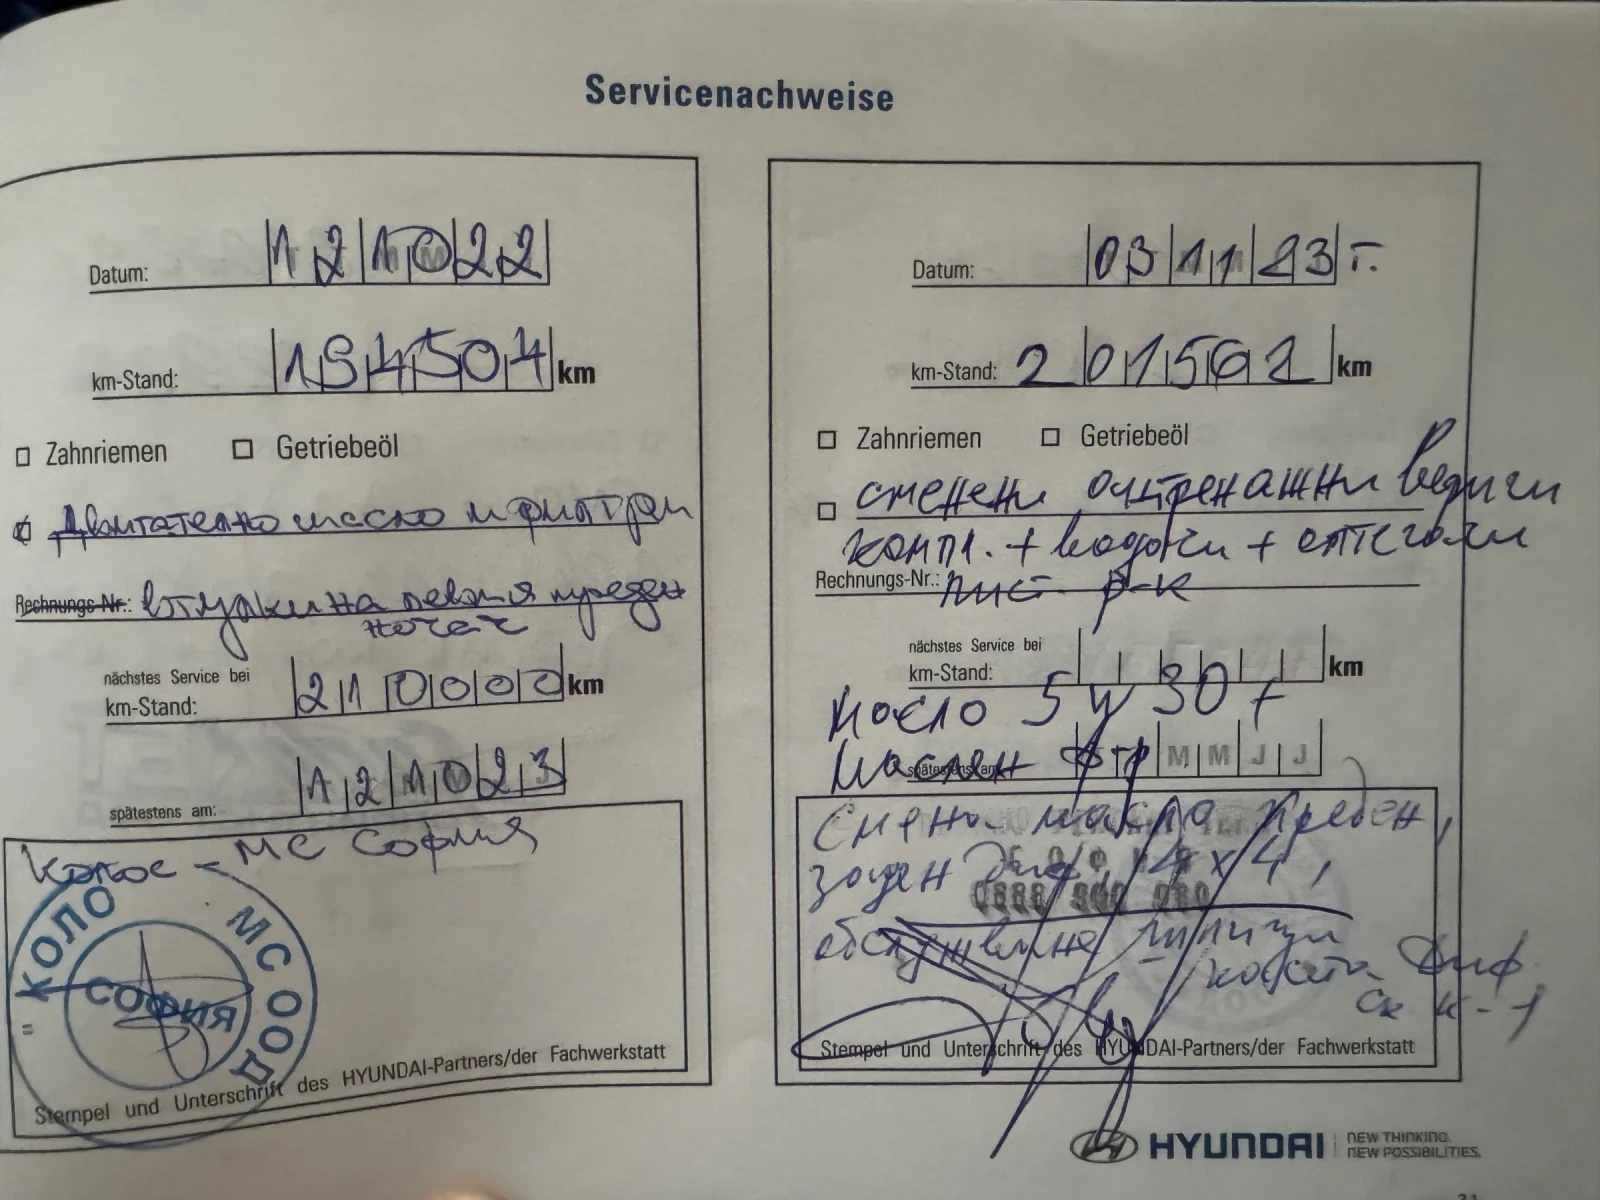 Servicenachweise
Datum: 12 10 22
km-Stand: 194504 km
Zahnriemen Getriebeöl
Двигателно масло и филтри
Rechnungs-Nr.: втулки на левия преден
носач
nächstes Service bei
km-Stand: 210000 km
spätestens am: 12 10 23
Колос - МС София
"КОЛО МС ООД
СОФИЯ
Stempel und Unterschrift des HYUNDAI-Partners/der Fachwerkstatt
Datum: 03 11 23 г.
km-Stand: 201562 km
Zahnriemen Getriebeöl
сменени ангренажни вериги
компл. + водачи + обтегачи
Rechnungs-Nr.:
nächstes Service bei
km-Stand: km
Масло 5 W 30 +
Маслен фтр
spätestens am: M M J J
Смени масло преден,
заден диф, 4x4,
0888 800 980
обслужване шлици
диф
ск к-т
Stempel und Unterschrift des HYUNDAI-Partners/der Fachwerkstatt
HYUNDAI NEW THINKING.
NEW POSSIBILITIES.
31